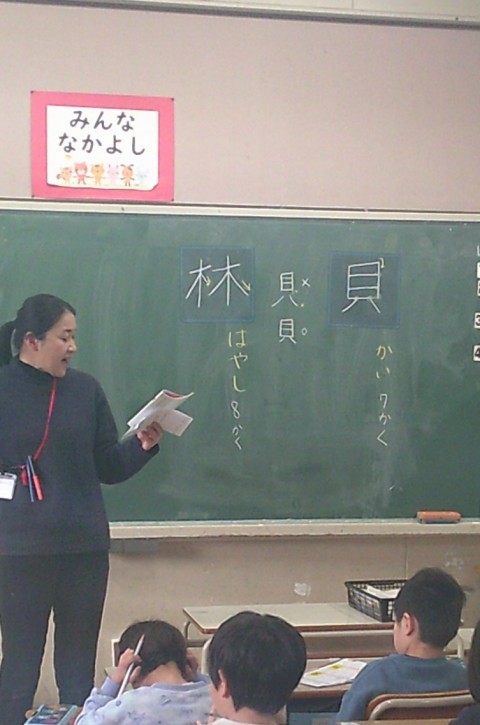 みんな
なかよし
貝
かい 7かく
見 ×
貝 ○
林
はやし 8かく